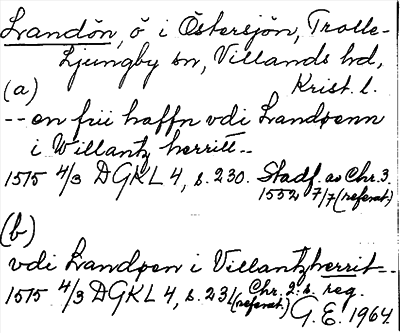 Landön, ö i Östersjön, Trolle-
Ljungby sn, Villands hd,
Krist. l.
(a)
-- en frii haffn vdi Landøenn
i Willantz herritt --
1515 4/3 DGKL 4, s. 230. Stadf. av Chr. 3.
1552 7/7 (referat.)
(b)
vdi Landøen i Villantzherrit --
1515 4/3 DGKL 4, s. 231 (referat.) Chr. 2:s reg.
G.E. 1964.